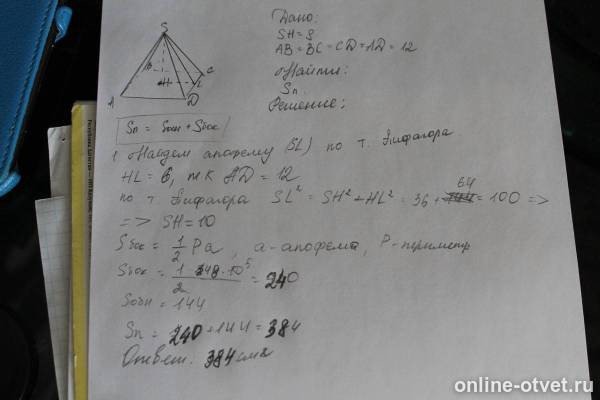 S
B
C
H
L
A
D
Дано:
SH=8
AB=BC=CD=AD=12
Найти:
Sп.
Решение:
Sп = Sосн + Sбок
1. Найдем апофему (SL) по т. Пифагора
HL=6, т.к AD=12
по т. Пифагора SL² = SH² + HL² = 36 + 64 = 100 =>
=> SH=10
Sбок = 1/2 Pa, a-апофема, P-периметр
Sбок = 1·48·10/2 = 240
Sосн = 144
Sп = 240+144=384
Ответ. 384 см²
online-otvet.ru